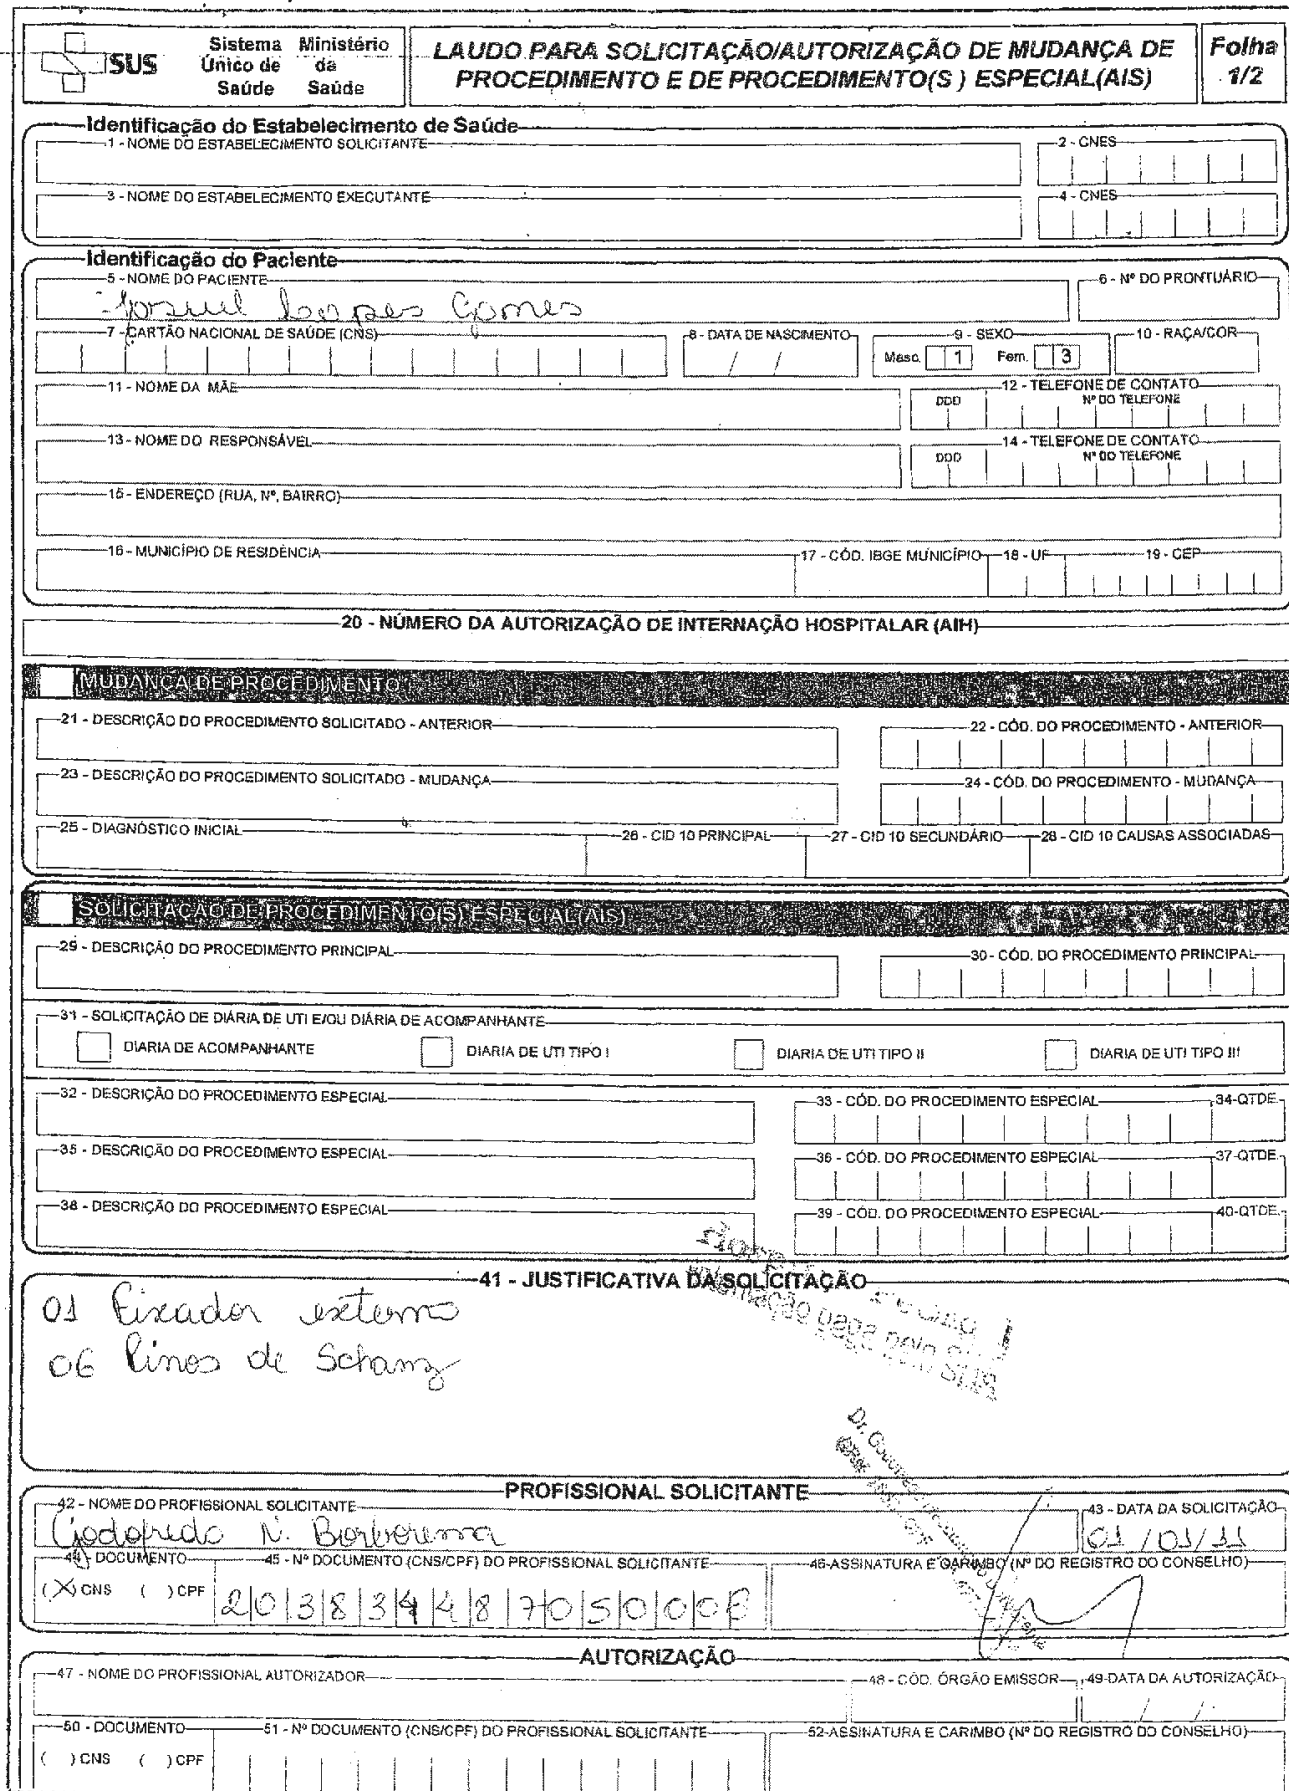 SUS
Sistema Único de Saúde
Ministério da Saúde
LAUDO PARA SOLICITAÇÃO/AUTORIZAÇÃO DE MUDANÇA DE
PROCEDIMENTO E DE PROCEDIMENTO(S) ESPECIAL(AIS)
Folha
1/2
Identificação do Estabelecimento de Saúde
1 - NOME DO ESTABELECIMENTO SOLICITANTE
2 - CNES
3 - NOME DO ESTABELECIMENTO EXECUTANTE
4 - CNES
Identificação do Paciente
5 - NOME DO PACIENTE
6 - Nº DO PRONTUÁRIO
Lopes Gomes
7 - CARTÃO NACIONAL DE SAÚDE (CNS)
8 - DATA DE NASCIMENTO
/ /
9 - SEXO
Masc. 1 Fem. 3
10 - RAÇA/COR
11 - NOME DA MÃE
12 - TELEFONE DE CONTATO
DDD Nº DO TELEFONE
13 - NOME DO RESPONSÁVEL
14 - TELEFONE DE CONTATO
DDD Nº DO TELEFONE
15 - ENDEREÇO (RUA, Nº, BAIRRO)
16 - MUNICÍPIO DE RESIDÊNCIA
17 - CÓD. IBGE MUNICÍPIO
18 - UF
19 - CEP
20 - NÚMERO DA AUTORIZAÇÃO DE INTERNAÇÃO HOSPITALAR (AIH)
MUDANÇA DE PROCEDIMENTO
21 - DESCRIÇÃO DO PROCEDIMENTO SOLICITADO - ANTERIOR
22 - CÓD. DO PROCEDIMENTO - ANTERIOR
23 - DESCRIÇÃO DO PROCEDIMENTO SOLICITADO - MUDANÇA
24 - CÓD. DO PROCEDIMENTO - MUDANÇA
25 - DIAGNÓSTICO INICIAL
26 - CID 10 PRINCIPAL
27 - CID 10 SECUNDÁRIO
28 - CID 10 CAUSAS ASSOCIADAS
SOLICITAÇÃO DE PROCEDIMENTO(S) ESPECIAL(AIS)
29 - DESCRIÇÃO DO PROCEDIMENTO PRINCIPAL
30 - CÓD. DO PROCEDIMENTO PRINCIPAL
31 - SOLICITAÇÃO DE DIÁRIA DE UTI E/OU DIÁRIA DE ACOMPANHANTE
DIARIA DE ACOMPANHANTE
DIARIA DE UTI TIPO I
DIARIA DE UTI TIPO II
DIARIA DE UTI TIPO III
32 - DESCRIÇÃO DO PROCEDIMENTO ESPECIAL
33 - CÓD. DO PROCEDIMENTO ESPECIAL
34-QTDE.
35 - DESCRIÇÃO DO PROCEDIMENTO ESPECIAL
36 - CÓD. DO PROCEDIMENTO ESPECIAL
37-QTDE.
38 - DESCRIÇÃO DO PROCEDIMENTO ESPECIAL
39 - CÓD. DO PROCEDIMENTO ESPECIAL
40-QTDE.
41 - JUSTIFICATIVA DA SOLICITAÇÃO
01 Fixador externo
06 Pinos de Schanz
paga pelo SUS
PROFISSIONAL SOLICITANTE
42 - NOME DO PROFISSIONAL SOLICITANTE
43 - DATA DA SOLICITAÇÃO
Godofredo N. Borborema
01/01/11
44 - DOCUMENTO
45 - Nº DOCUMENTO (CNS/CPF) DO PROFISSIONAL SOLICITANTE
46-ASSINATURA E CARIMBO (Nº DO REGISTRO DO CONSELHO)
(X) CNS ( ) CPF
Dr.
AUTORIZAÇÃO
47 - NOME DO PROFISSIONAL AUTORIZADOR
48 - CÓD. ÓRGÃO EMISSOR
49-DATA DA AUTORIZAÇÃO
/ /
50 - DOCUMENTO
51 - Nº DOCUMENTO (CNS/CPF) DO PROFISSIONAL SOLICITANTE
52-ASSINATURA E CARIMBO (Nº DO REGISTRO DO CONSELHO)
( ) CNS ( ) CPF